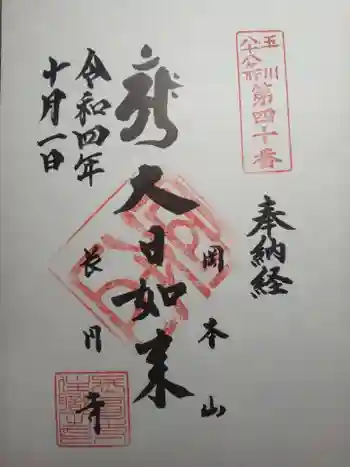 玉川
八十八ヶ所
第四十番
奉納経
岡本山
大日如来
長円寺
令和四年
十月一日